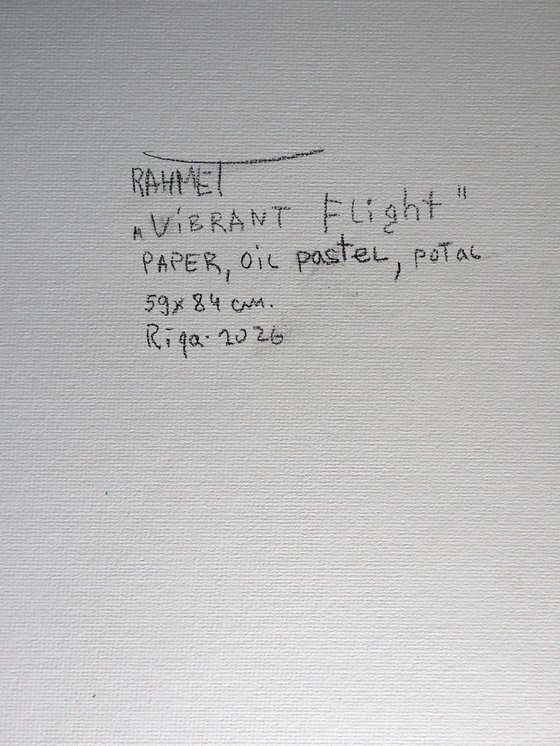 RAHMET
„VIBRANT Flight"
PAPER, OIL pastel, POTAL
59x84 cm.
Rīga. 2026